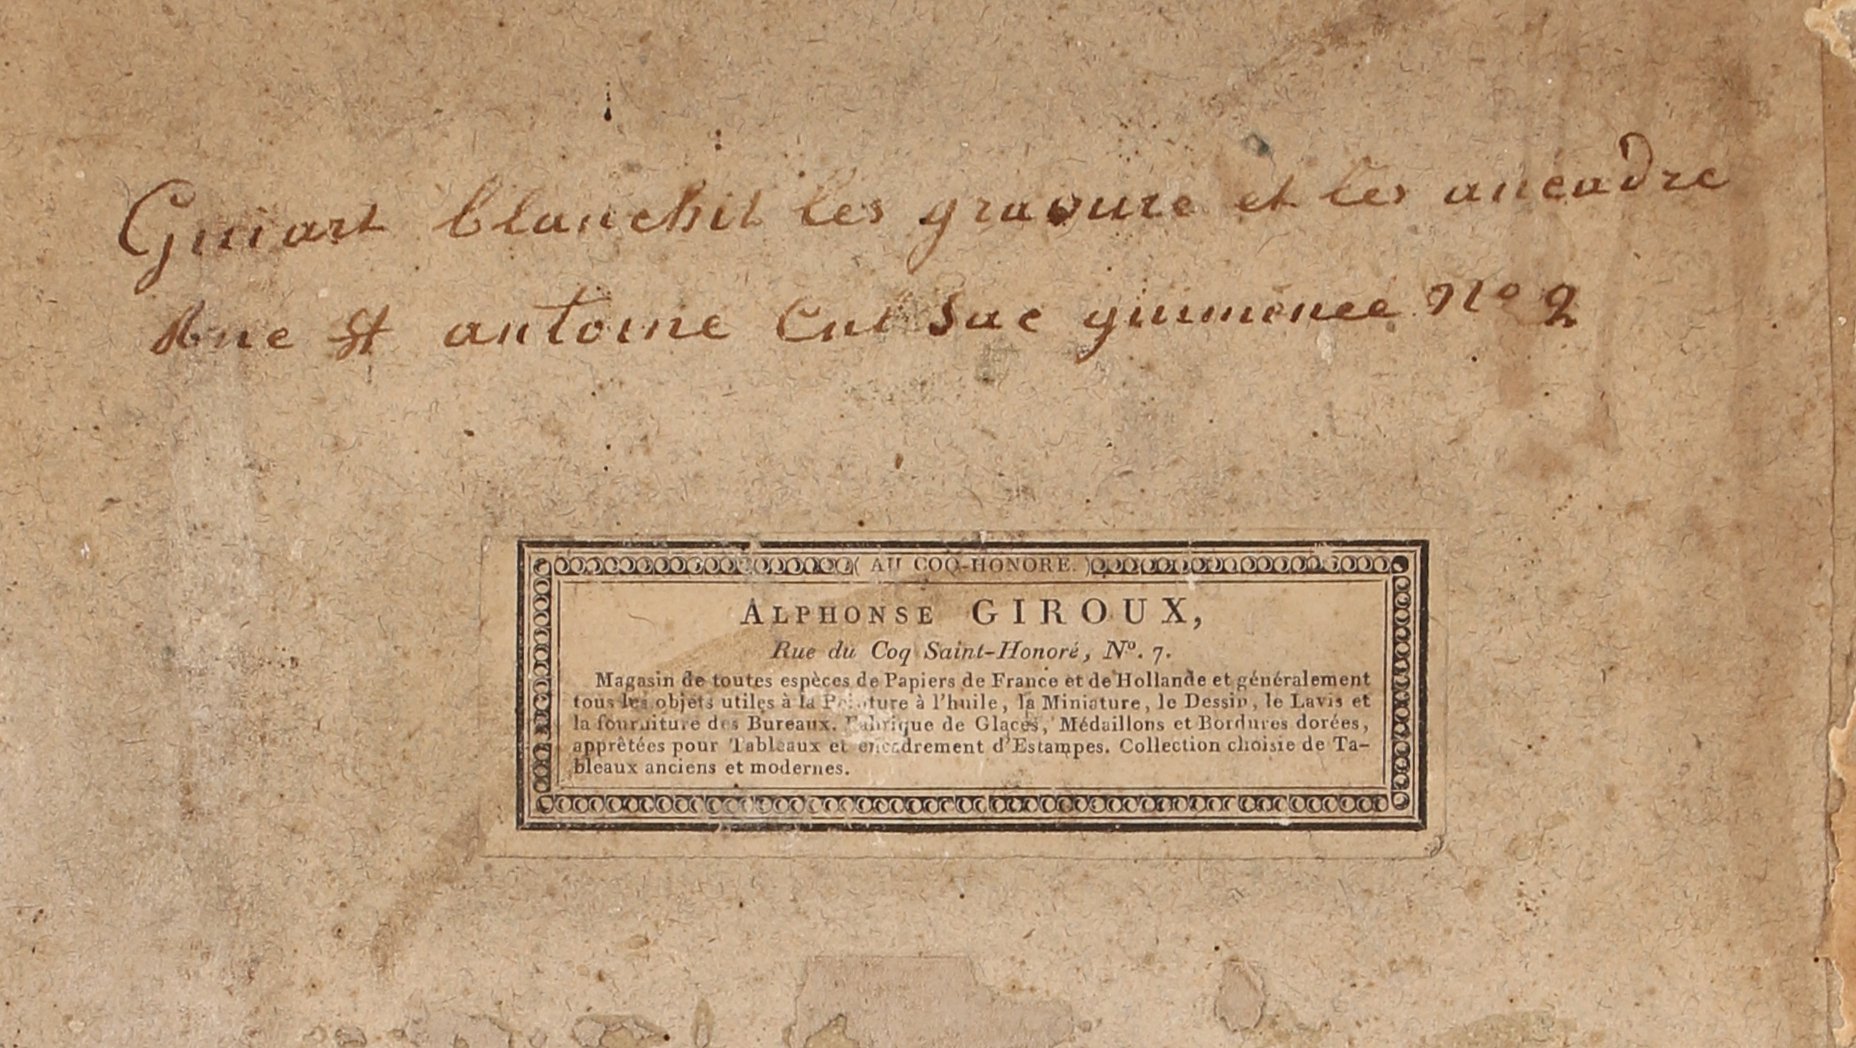 Guiart blanchit les gravure et les aucadre
Rue St antoine Cul Sac guimenee No 2
AU COQ-HONORÉ.
ALPHONSE GIROUX,
Rue du Coq Saint-Honoré, Nº. 7.
Magasin de toutes espèces de Papiers de France et de Hollande et généralement
tous les objets utiles à la Peinture à l'huile, la Miniature, le Dessin, le Lavis et
la fourniture des Bureaux. Fabrique de Glaces, Médaillons et Bordures dorées,
apprêtées pour Tableaux et encadrement d'Estampes. Collection choisie de Ta-
bleaux anciens et modernes.